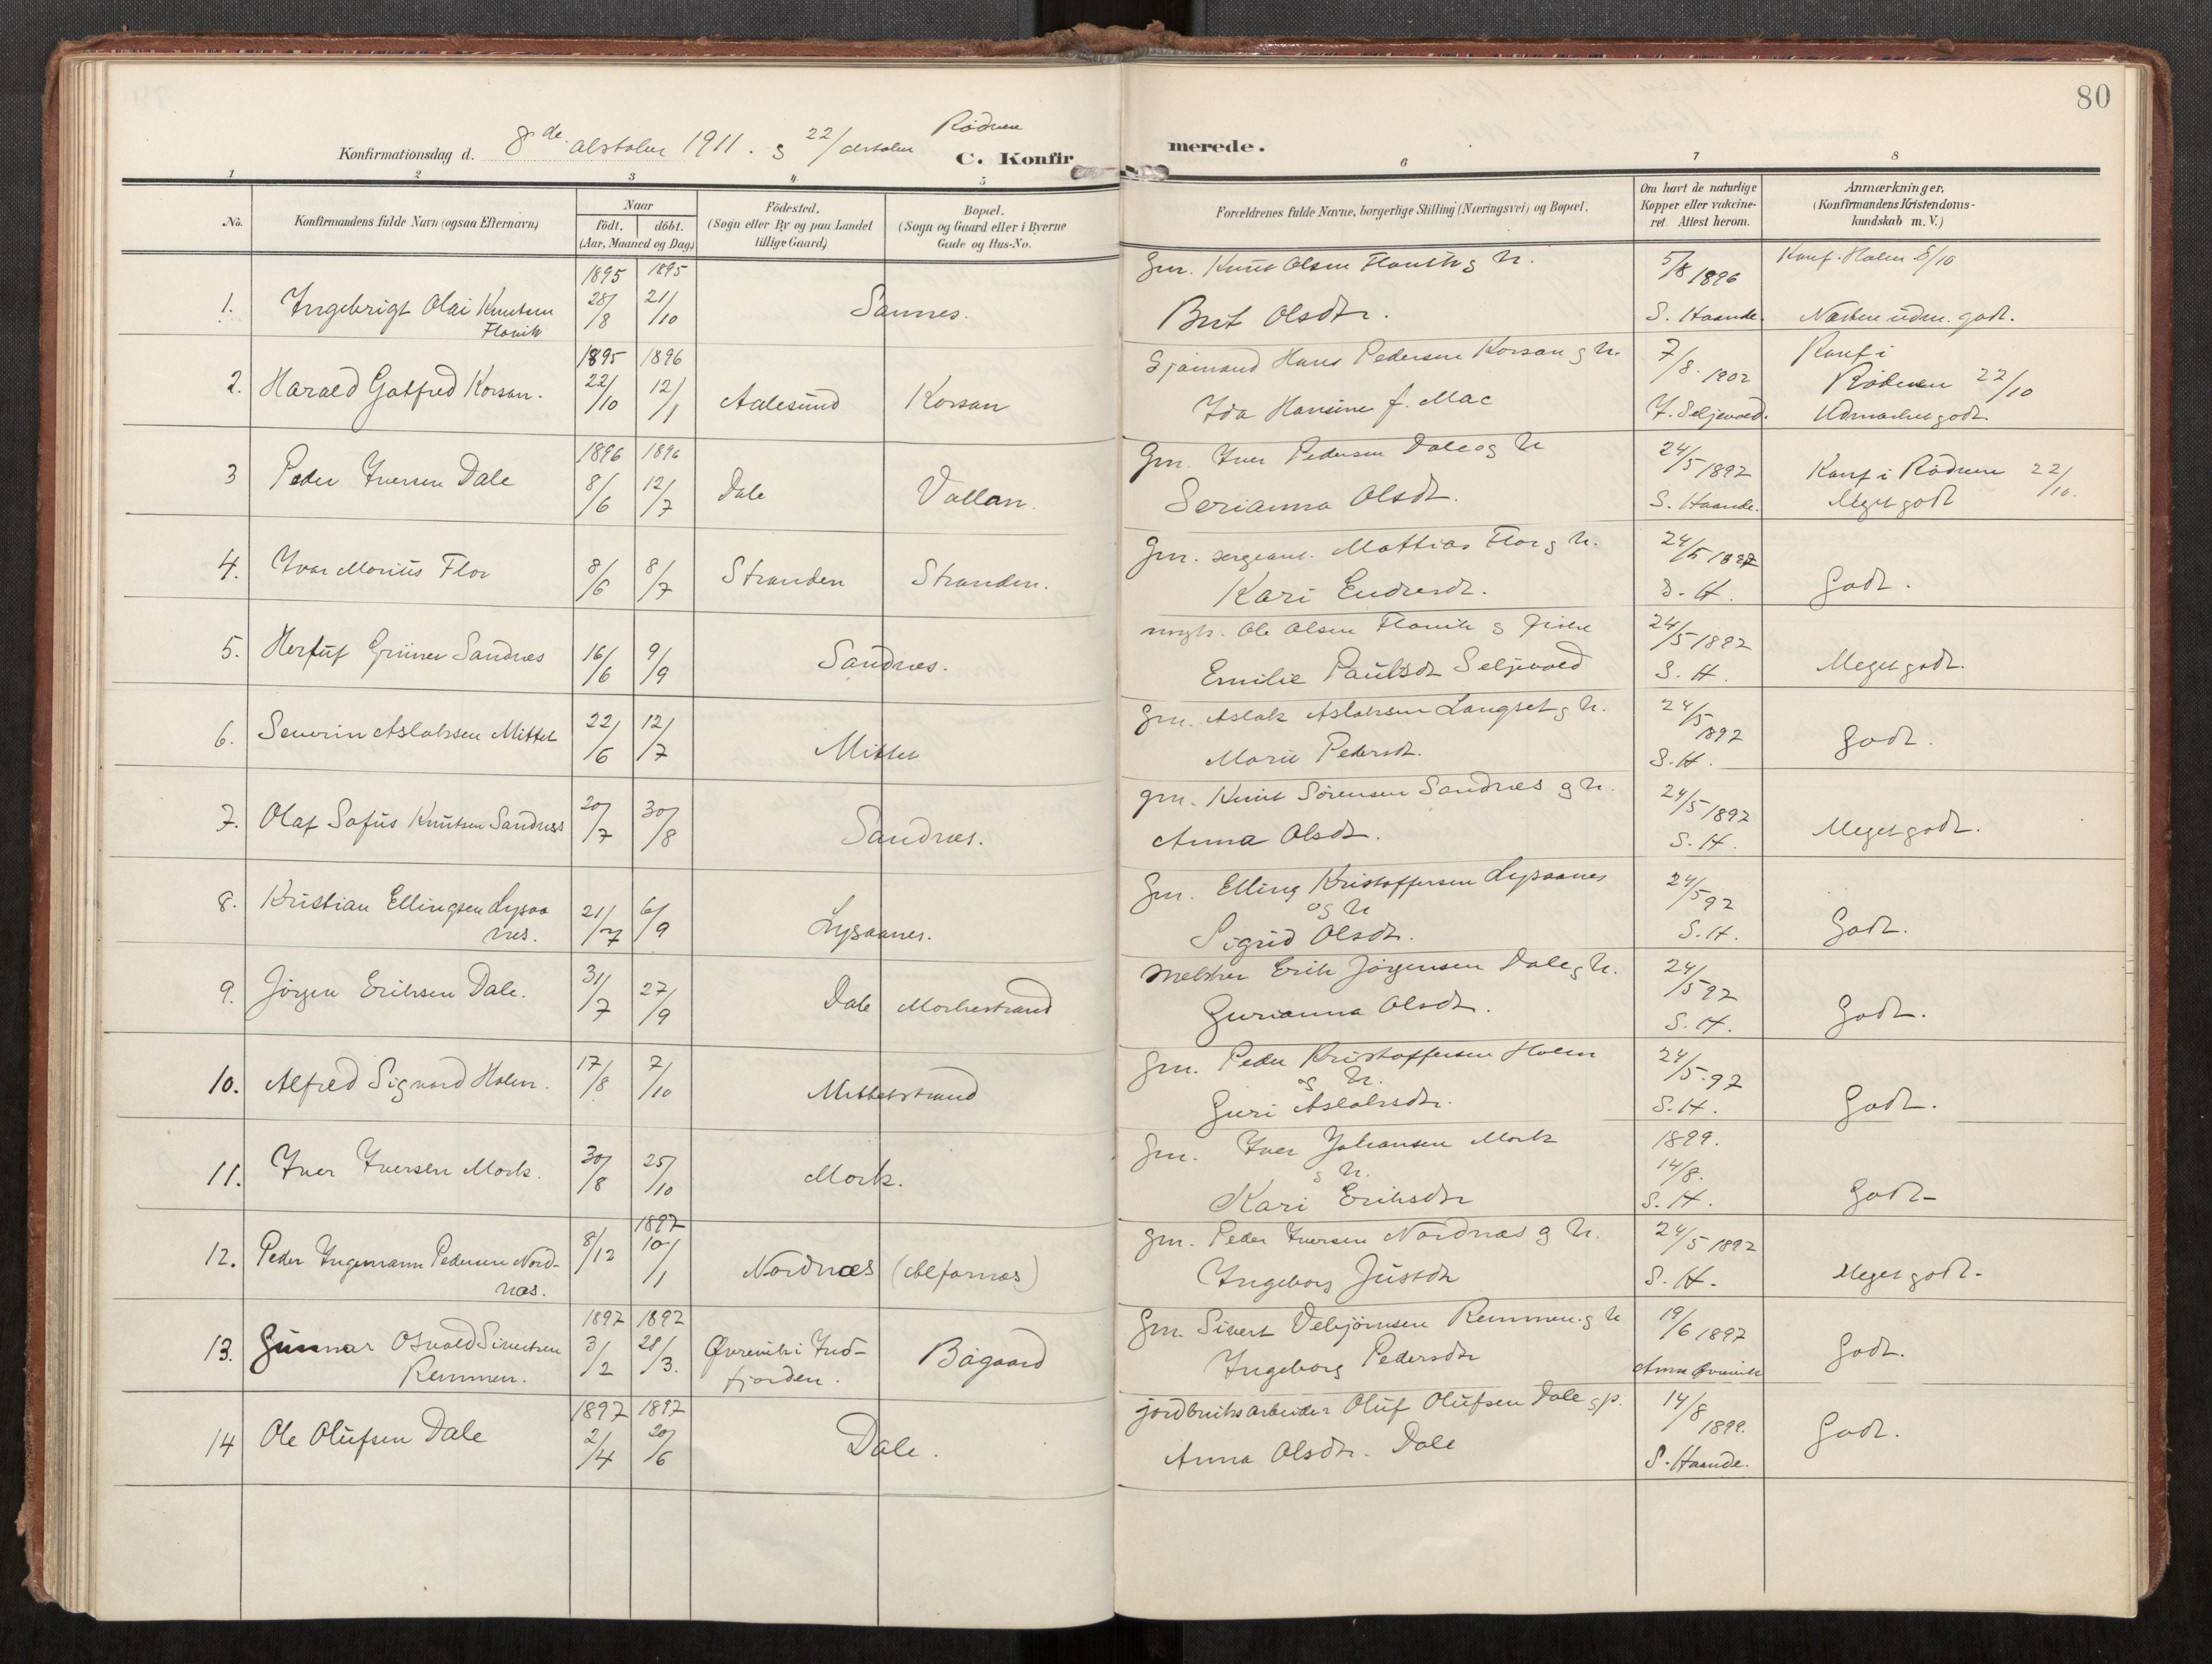 80
Rødven
Konfirmationsdag d. 8de oktober 1911. og 22/ oktober
C. Konfirmerede.
1 2 3 4 5 6 7 8
No.
Konfirmandens fulde Navn (ogsaa Efternavn)
Naar
födt. döbt.
(Aar, Maaned og Dag)
Födested.
(Sogn eller By og paa Landet
tillige Gaard)
Bopæl.
(Sogn og Gaard eller i Byerne
Gade og Hus-No.
Forældrenes fulde Navne, borgerlige Stilling (Næringsvei) og Bopæl.
Om havt de naturlige
Kopper eller vakcine-
ret Attest herom.
Anmærkninger.
(Konfirmandens Kristendoms-
kundskab m. V.)
1. Ingebrigt Olai Knutsen
Flovik
1895 28/8
1895 21/10
Sannes.
Gm. Knut Olsen Flovik og h.
Brit Olsdtr.
5/8 1896
S. Haande.
Konf. Holm 8/10
Næsten udm. godt.
2. Harald Gotfred Korsan.
1895 22/10
1896 12/1
Aalesund
Korsan
Sjømand Hans Pedersen Korsan og h.
Ida Hansine f. Mac
7/8 1902
I. Seljevold.
Konf i
Rødven 22/10
Udmærket godt
3 Peder Iversen Dale
1896 8/6
1896 12/7
Dale
Vollan.
Gm. Iver Pedersen Dale og h
Serianna Olsdt.
24/5 1897
S. Haande.
Konf i Rødven 22/10.
Meget godt
4. Ivar Marius Flor
8/6
8/7
Stranden
Stranden.
Gm. sergeant. Mattias Flor og h.
Kari Endresdt.
24/5 1897
S. H.
Godt.
5. Herluf Grüner Sandnes
16/6
9/9
Sandnes.
ungk. Ole Olsen Flovik og pike
Emilie Paulsdt Seljevold
24/5 1897
S. H.
Meget godt.
6. Severin Aslaksen Mittet
22/6
12/7
Mittet
Gm. Aslak Aslaksen Langset og h.
Marie Pedersdt.
24/5 1897
S. H.
Godt.
7. Olaf Sofus Knutsen Sandnes
20/7
30/8
Sandnes.
gm. Knut Sørensen Sandnes og h.
Anna Olsdt.
24/5 1897
S. H.
Meget godt.
8. Kristian Ellingsen Lysaa
nes.
21/7
6/9
Lysaanes.
Gm. Elling Kristoffersen Lysaanes
og h
Sigrid Olsdt.
24/5 97
S. H.
Godt.
9. Jørgen Eriksen Dale.
31/7
27/9
Dale
Morkestrand
Erik Jørgensen Dale og h.
Gurianna Olsdt.
24/5 97
S. H.
Godt.
10. Alfred Sigvard Holm.
17/8
7/10
Mittetstrand
Gm. Peder Kristoffersen Holm
og h.
Guri Aslaksdtr.
24/5.97
S. H.
Godt.
11. Iver Iversen Mork.
30/8
25/10
Mork.
Gm. Iver Johansen Mork
og h.
Kari Eriksdtr
1899.
14/8.
S. H.
Godt-
12. Peder Ingemann Pedersen Nord-
næs.
8/12
1897 10/1
Nordnæs (Alfarnæs)
gm. Peder Iversen Nordnæs og h.
Ingeborg Justsdtr
24/5 1897
S. H.
Meget godt.
13. Gunnar Osvald Sivertsen
Remmen.
1897 3/2
1897 28/3.
Øvrevik i Ind-
fjorden.
Bøgaard
Gm. Sivert Vebjørnsen Remmen og h
Ingeborg Pedersdtr
19/6 1897
Anna Øvrevik
Godt.
14 Ole Olufsen Dale
1897 2/4
1897 20/6
Dale.
jordbruksarbeider Oluf Olufsen Dale og p.
Anna Olsdtr. Dale
14/8 1899.
S. Haande.
Godt.